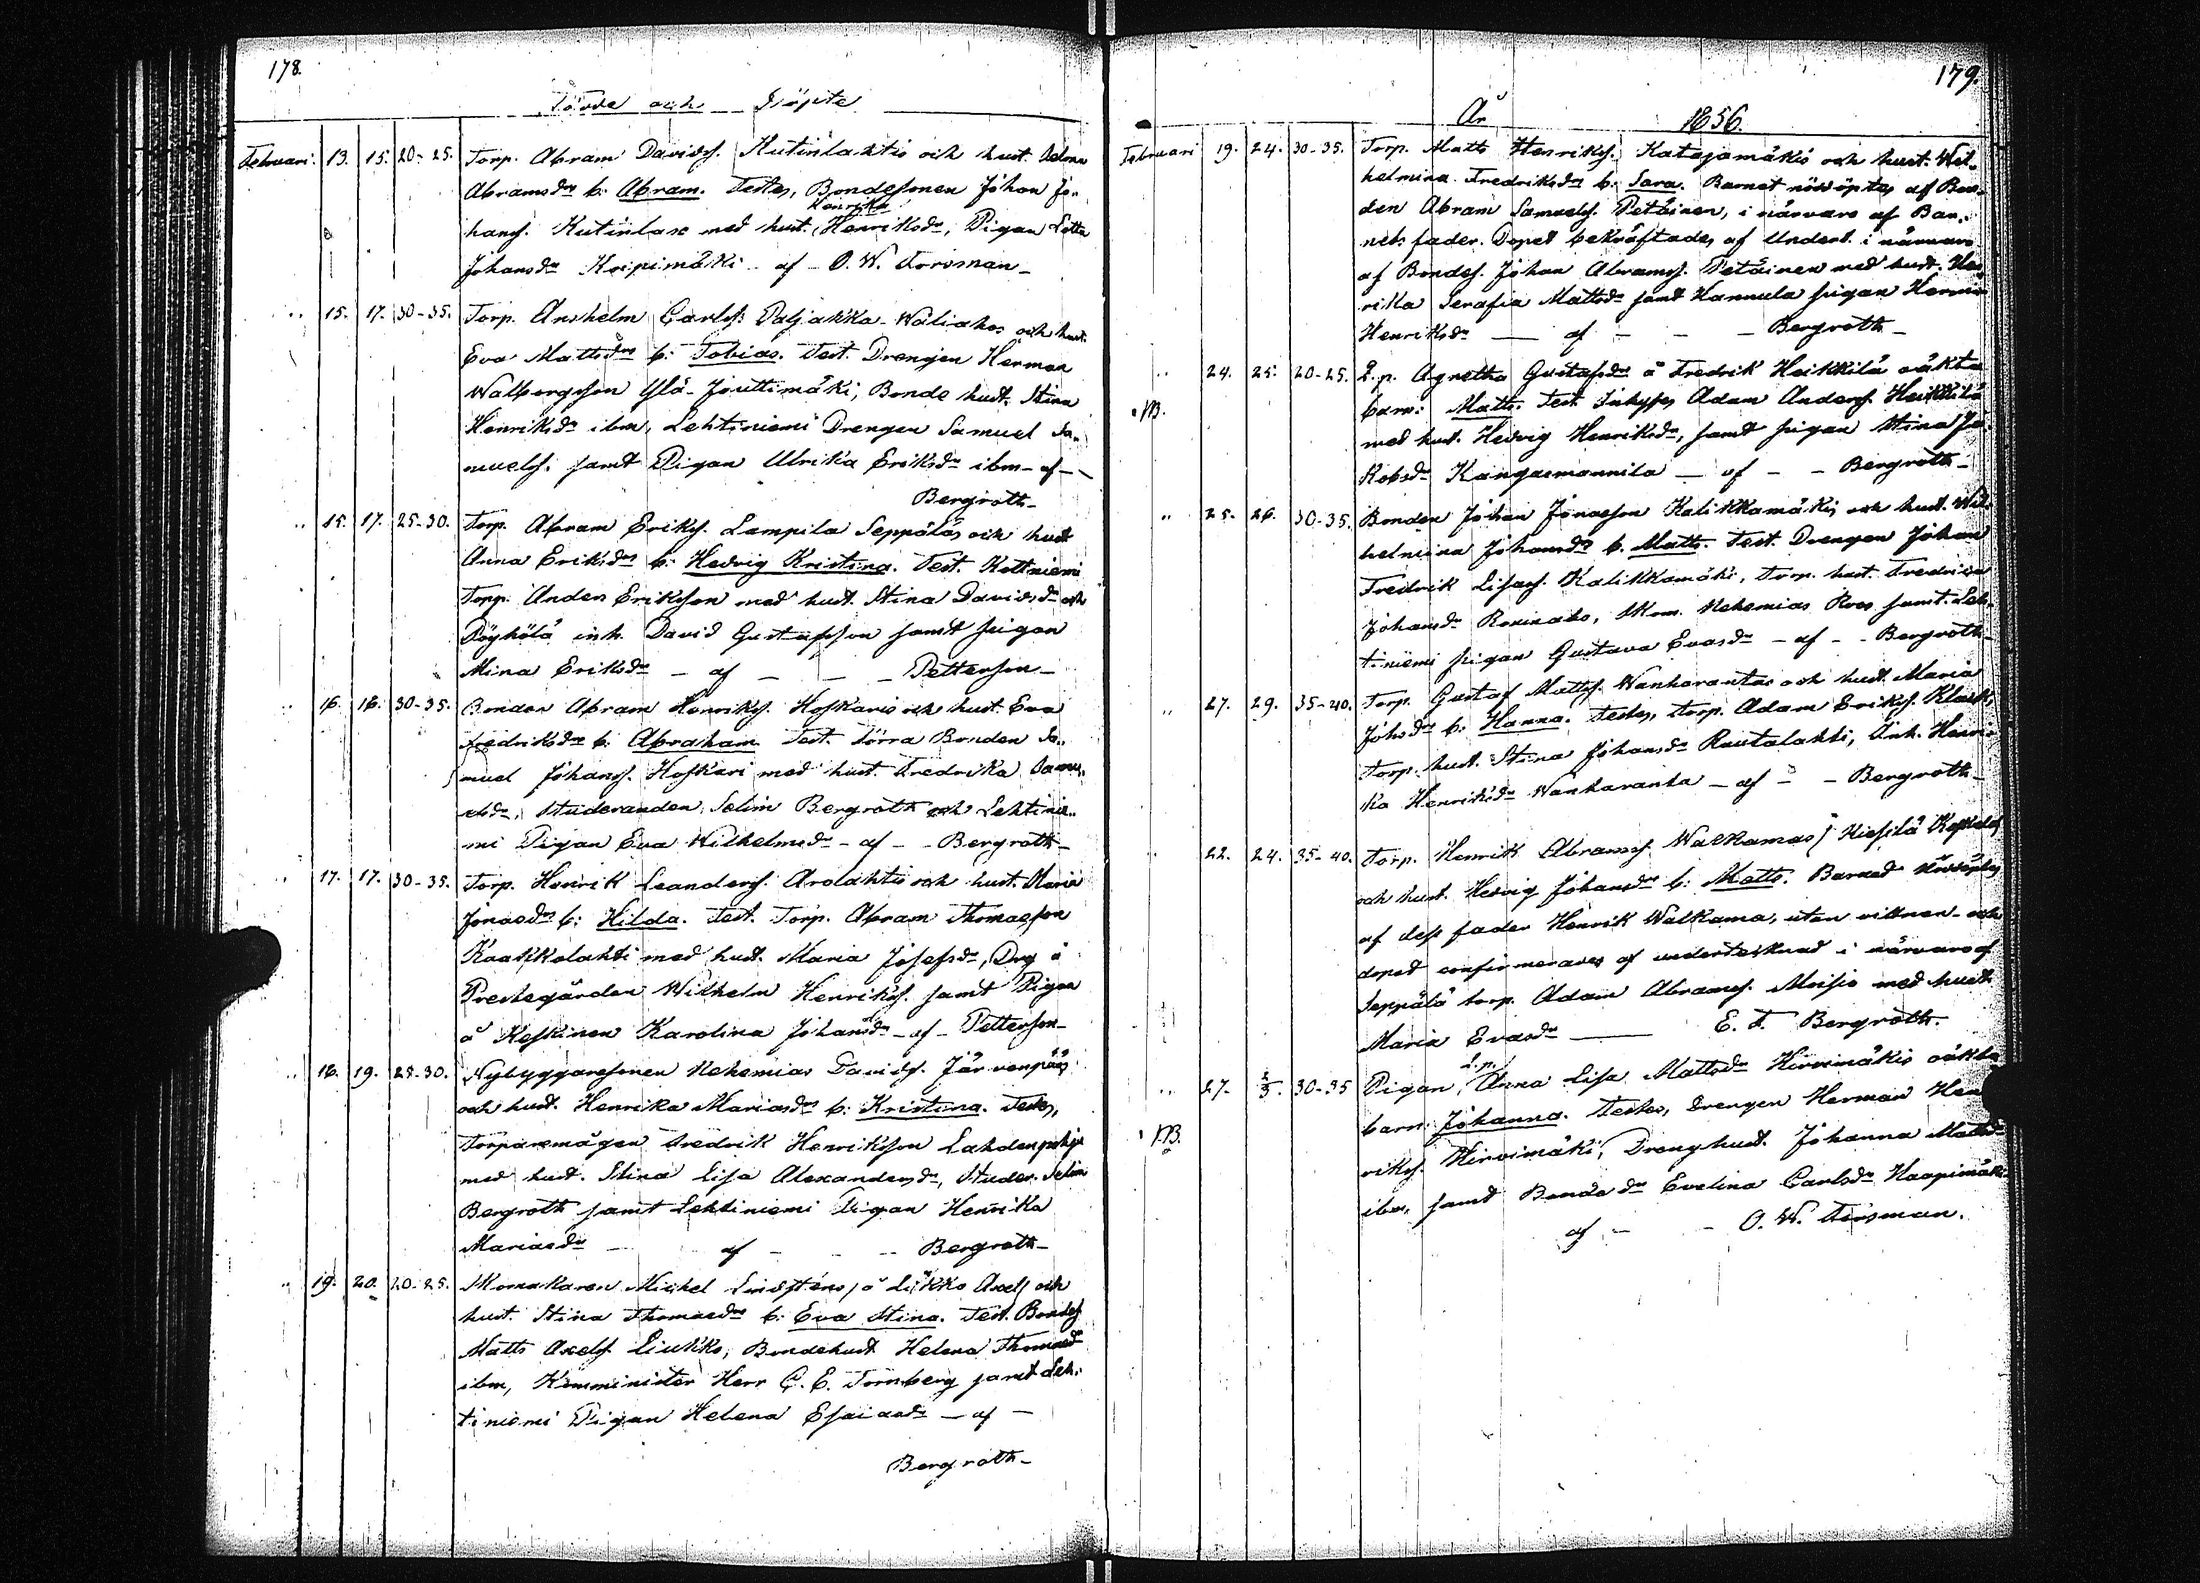 178.
Födde och Döpte
Februari. 13. 15. 20-25. Torp. Abram Davidss. Kutinlahtis och hust. Helena
Abramsdrs b: Abram. Testes, Bondesonen Johan Jo-
hanss. Kutinlaso med hust. Henrika Henriksdr, Pigan Lotta
Johansdr Koipimäki - af - O. W. Forsman -
15. 17. 30-35. Torp. Anshelm Carlss. Paljakka-Waliahos och hust.
Eva Mattsdrs b: Tobias. Test. Drengen Herman
Walbergsson Ylä-Jouttimäki, Bonde hust. Stina
Henriksdr ibm, Lehtiniemi Drengen Samuel Sa-
muelss. samt Pigan Ulrika Eriksdr ibm - af -
Bergroth -
15. 17. 25-30. Torp. Abram Erikss. Lampila Seppäläs och hust
Anna Eriksdrs b: Hedvig Kristina. Test. Kottniemi
Torp. Anders Eriksson med hust. Stina Davidsdr och
Pöyhölä inh. David Gustafsson samt pigan
Mina Eriksdr - af - - Petterson -
16. 16. 30-35. Bonden Abram Henrikss. Hofkaris och hust. Eva
Fredriksdrs b: Abraham. Test. Förra Bonden Sa-
muel Johanss. Hofkari med hust. Fredrika Samu-
elsdr, Studeranden Selim Bergroth och Lehtinie-
mi Pigan Eva Wilhelmsdr - af - - Bergroth -
17. 17. 30-35. Torp. Henrik Leanderss. Arolahtis och hust. Maria
Jonasdrs b: Hilda. Test. Torp. Abram Thomasson
Kaakkolahti med hust. Maria Josefsdr, Drg å
Prestegården Wilhelm Henrikss. samt Pigan
å Keskinen Karolina Johansdr - af - Petterson -
16. 19. 25-30. Nybyggaresonen Nehemias Davidss. Järvenpääs
och hust. Henrika Mariasdrs b: Kristina. Testes,
Torparemågen Fredrik Henriksson Lahdenpohja
med hust. Stina Lisa Alexandersdr, Studer. Selim
Bergroth samt Lehtiniemi Pigan Henrika
Mariasdr - af - - Bergroth -
19. 20. 20-25. Skomakaren Mickel Lindsténs, å Liukko Axell och
hust. Stina Thomasdrs b: Eva Stina. Test. Bondes
Matts Axelss. Liukko, Bondehust Helena Thomasdr
ibm, Komminister Herr C. E. Törnberg samt Leh-
tiniemi Pigan Helena Esaiasdr - af -
Bergroth -
179.
År 1856.
Februari 19. 24. 30-35. Torp. Matts Henrikss. Katajamäkis och hust. Wil-
helmina Fredriksdrs b: Sara. Barnet nöddöptes af Bon-
den Abram Samuelss. Petäinen, i närvaro af Bar-
nets fader. Dopet bekräftades af Undert. i närvaro
af Bondes. Johan Abramss. Petäinen med hust. Hen-
rika Serafia Mattsdr samt Hannula pigan Henrika
Henriksdr - af - - Bergroth -
24. 25. 20-25. L. p. Agnetha Gustafsdr å Fredrik Heikkilä oäkta
NB. barn: Matts. Test. Inhyses Adam Anderss. Heikkilä
med hust. Hedvig Henriksdr, samt pigan Stina Ja-
kobsdr Kangasmannila - af - - Bergroth -
25. 26. 30-35. Bonden Johan Jonasson Kalikkamäkis och hust. Wil-
helmina Johansdrs b. Matts. Test. Drengen Johan
Fredrik Lisass. Kalikkamäki, Torp. hust. Fredrika
Johansdr Rovinaho, Skom. Nehemias Roos samt Leh-
tiniemi pigan Gustava Evasdr - af - - Bergroth -
27. 29. 35-40. Torp. Gustaf Mattss. Wankarantas och hust. Maria
Johsdrs b: Hanna. Testes, torp. Adam Erikss. Klask,
Torp. hust. Stina Johansdr Rautalahti, Enk. Henri-
ka Henriksdr Wankaranta - af - - Bergroth -
22. 24. 35-40. Torp. Henrik Abramss. Walkamas, Hiesilä
och hust. Hedvig Johansdrs b: Matts. Barnet nöddöptes
af dess fader Henrik Walkama, utan vittnen - och
dopet confirmerades af undertecknad i närvaro af
Seppälä torp. Adam Abramss. Moisio med hust.
Maria Evasdr - E. F. Bergroth.
27. 2/3. 30-35 Pigan, L. p. Anna Lisa Mattsdr Hirvimäkis oäkta
NB. barn Johanna. Testes, Drengen Herman Hen-
rikss. Hirvimäki, Drenghust. Johanna Mattsdr
ibm, samt Bonde dr Evelina Carlsdr Haapimäki
af - - O. W. Forsman.